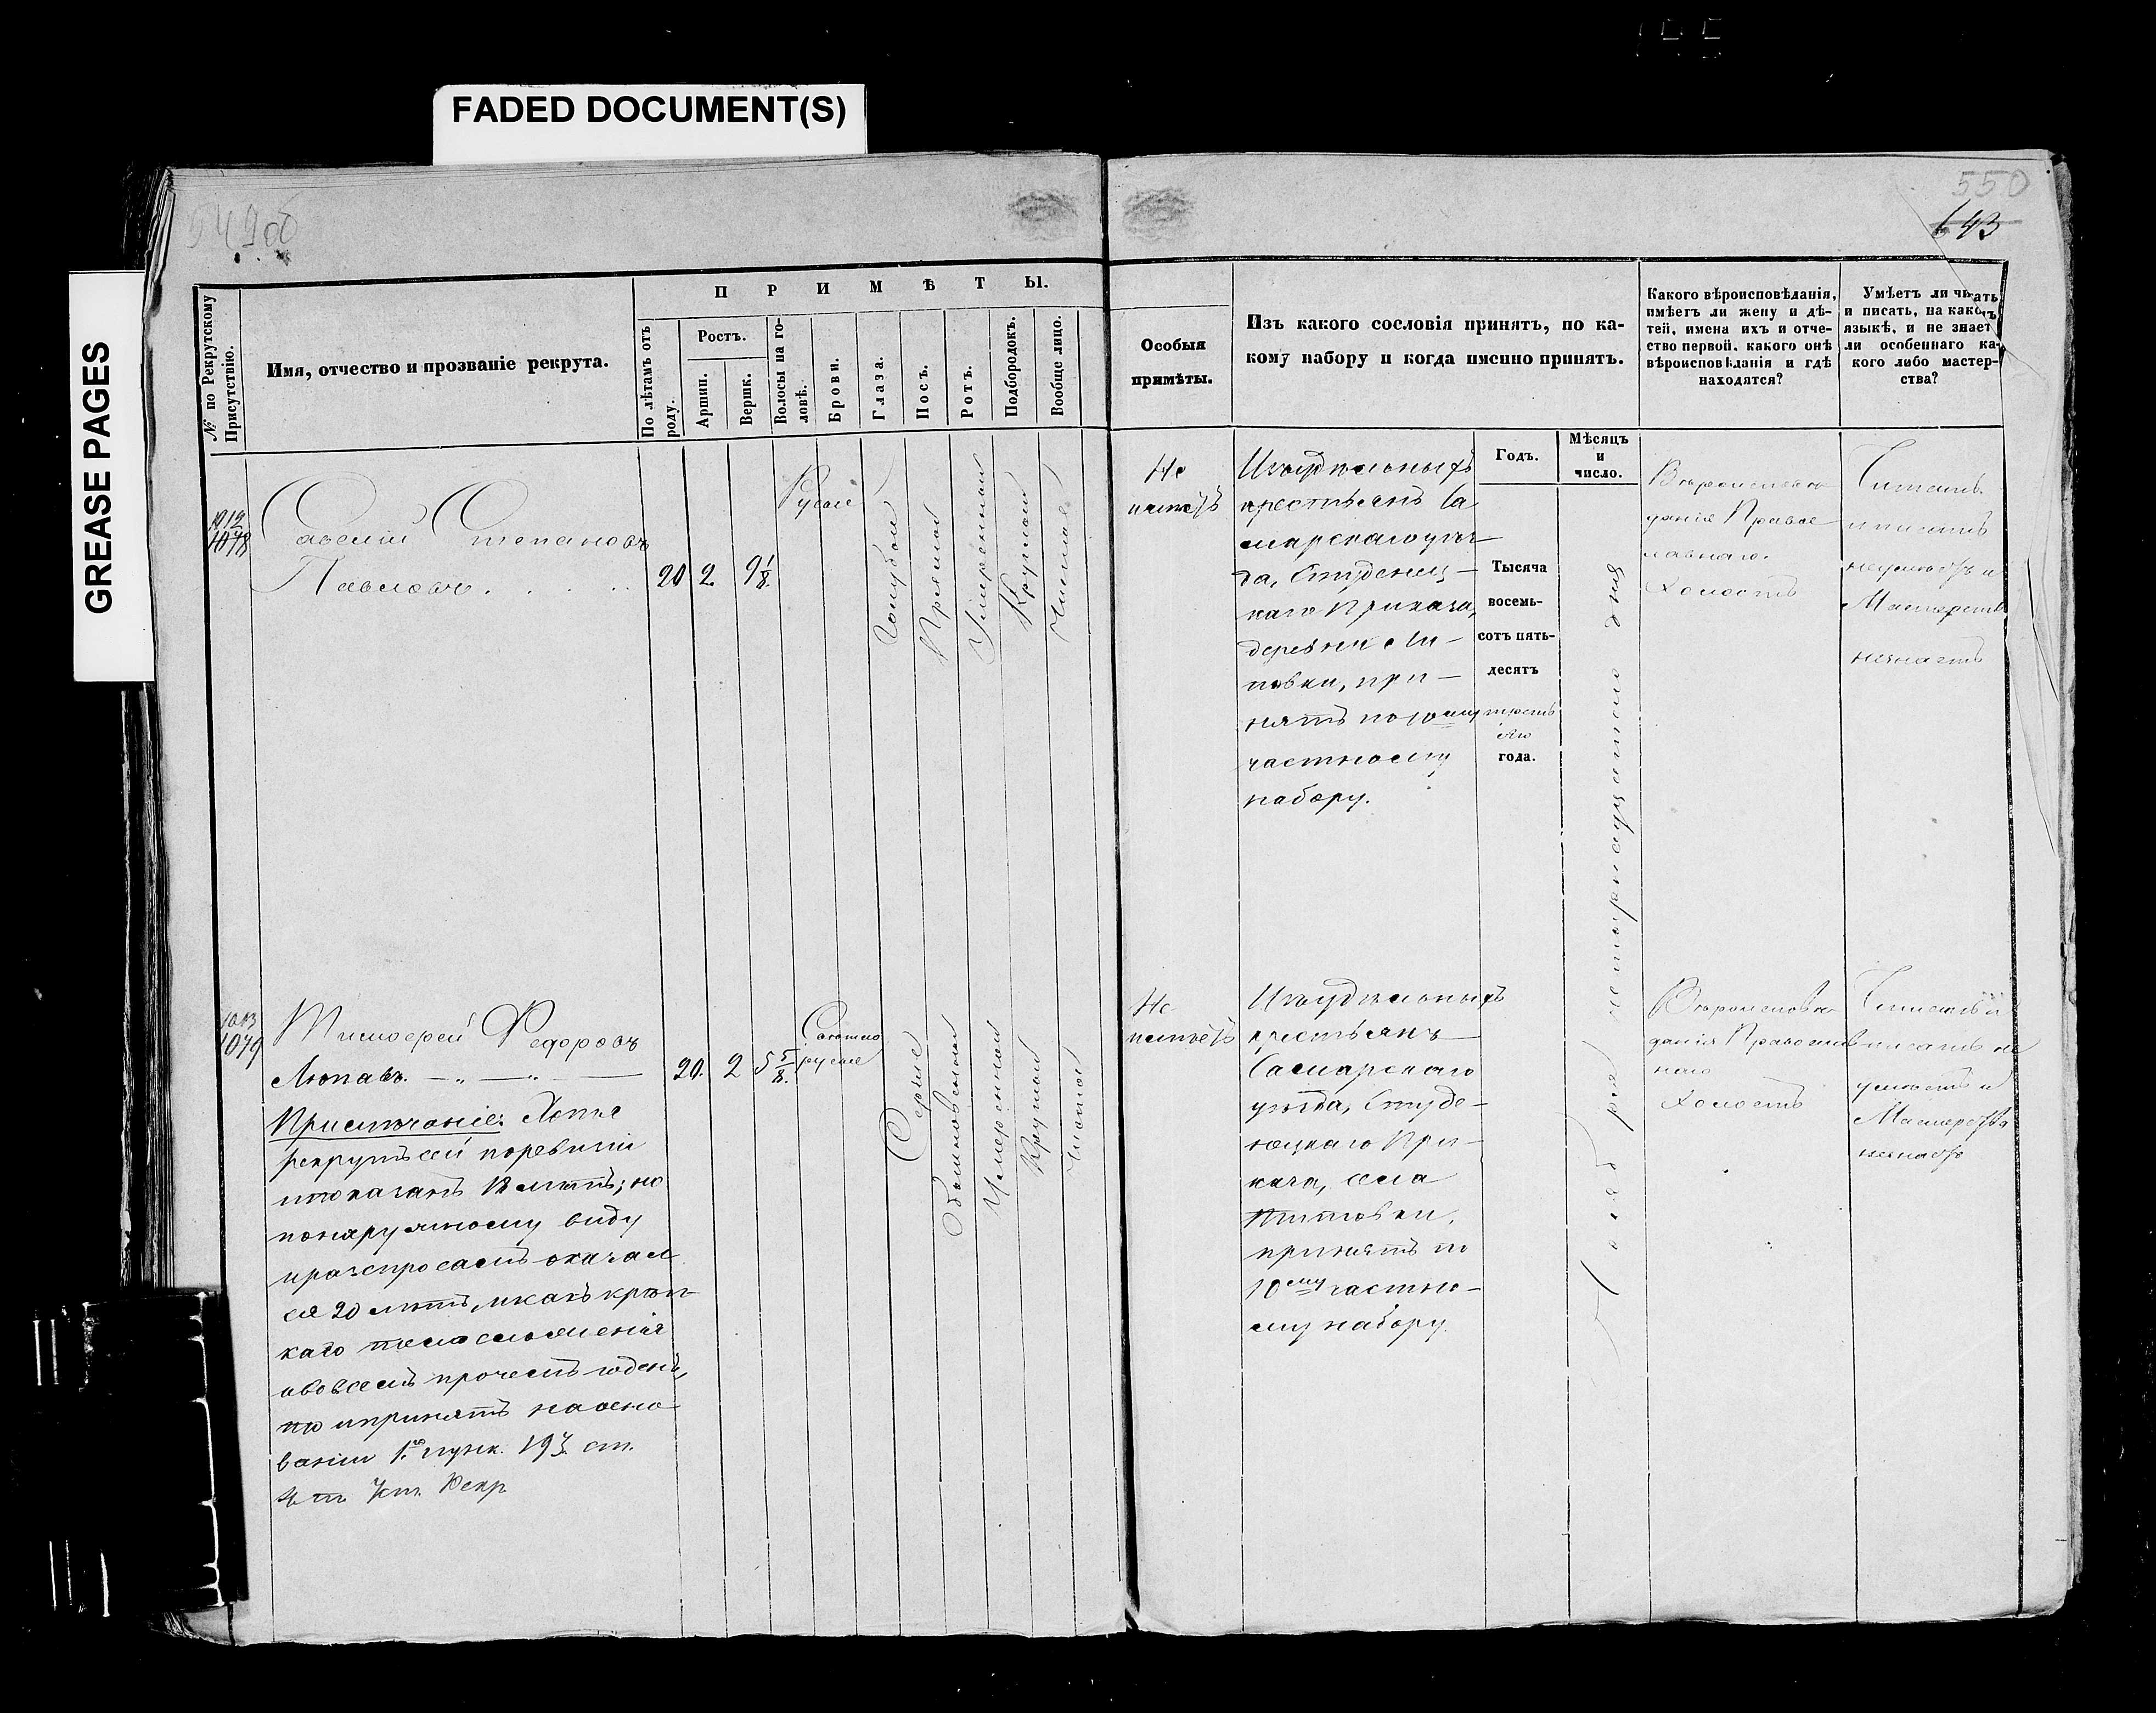 FADED DOCUMENT(S)
GREASE PAGES
549об
550
643
№ по Рекрутскому Присутствію.
Имя, отчество и прозваніе рекрута.
ПРИМѢТЫ.
По лѣтамъ отъ роду.
Ростъ.
Аршин.
Вершк.
Волосы на го-
ловѣ.
Брови.
Глаза.
Носъ.
Ротъ.
Подбородокъ.
Вообще лицо.
Особыя
примѣты.
Изъ какого сословія принятъ, по ка-
кому набору и когда именно принятъ.
Годъ.
Мѣсяцъ
и
число.
Какого вѣроисповѣданія,
имѣетъ ли жену и дѣ-
тей, имена ихъ и отче-
ство первой, какого онѣ
вѣроисповѣданія и гдѣ
находятся?
Умѣетъ ли читать
и писать, на какомъ
языкѣ, и не знаетъ
ли особеннаго ка-
кого либо мастер-
ства?
1012
1078
Савелій Степановъ
Павловъ
20
2
9 1/8
Русые
Голубые
Прямой
Умеренный
Круглый
Чистое
Не
имѣетъ
Изъ удѣльныхъ
крестьянъ Са
марскаго уѣз-
да, Студенец-
каго Приказа,
деревни Ли-
повки, при-
нятъ по 10му
частному
набору.
Тысяча
восемь-
сотъ пять-
десятъ
третьяго
года.
Вѣроисповѣ
данія Правос
лавнаго.
Холостъ
Читать
и писать
неумѣетъ и
Мастерства
незнаетъ
1013
1079
Тимофей Федоровъ
Люпавъ.
20.
2
5 5/8
Светло
русые
Серые
Обыкновенный
Умеренный
Круглый
Чистое
Примѣчаніе: Хотя
рекрутъ сей поревизіи
ипоказанъ 18 лѣтъ; но
понаружному виду
иразспросамъ оказал
ся 20 лѣтъ, икакъ крѣп-
каго тѣлосложенія
ивовсемъ прочемъ годенъ,
то ипринятъ наосно-
ваніи 1го пунк. 193 ст.
4 т. Уст. Рекр
Не
имѣетъ
Изъ удѣльныхъ
крестьянъ
Самарскаго
уѣзда, Студе-
нецкаго При-
каза, села
Титовки,
принятъ по
10му частно-
му набору.
Вѣроисповѣ
данія Православ
наго
Холостъ
Читать и
писать не
умѣетъ и
Мастерства
незнаетъ